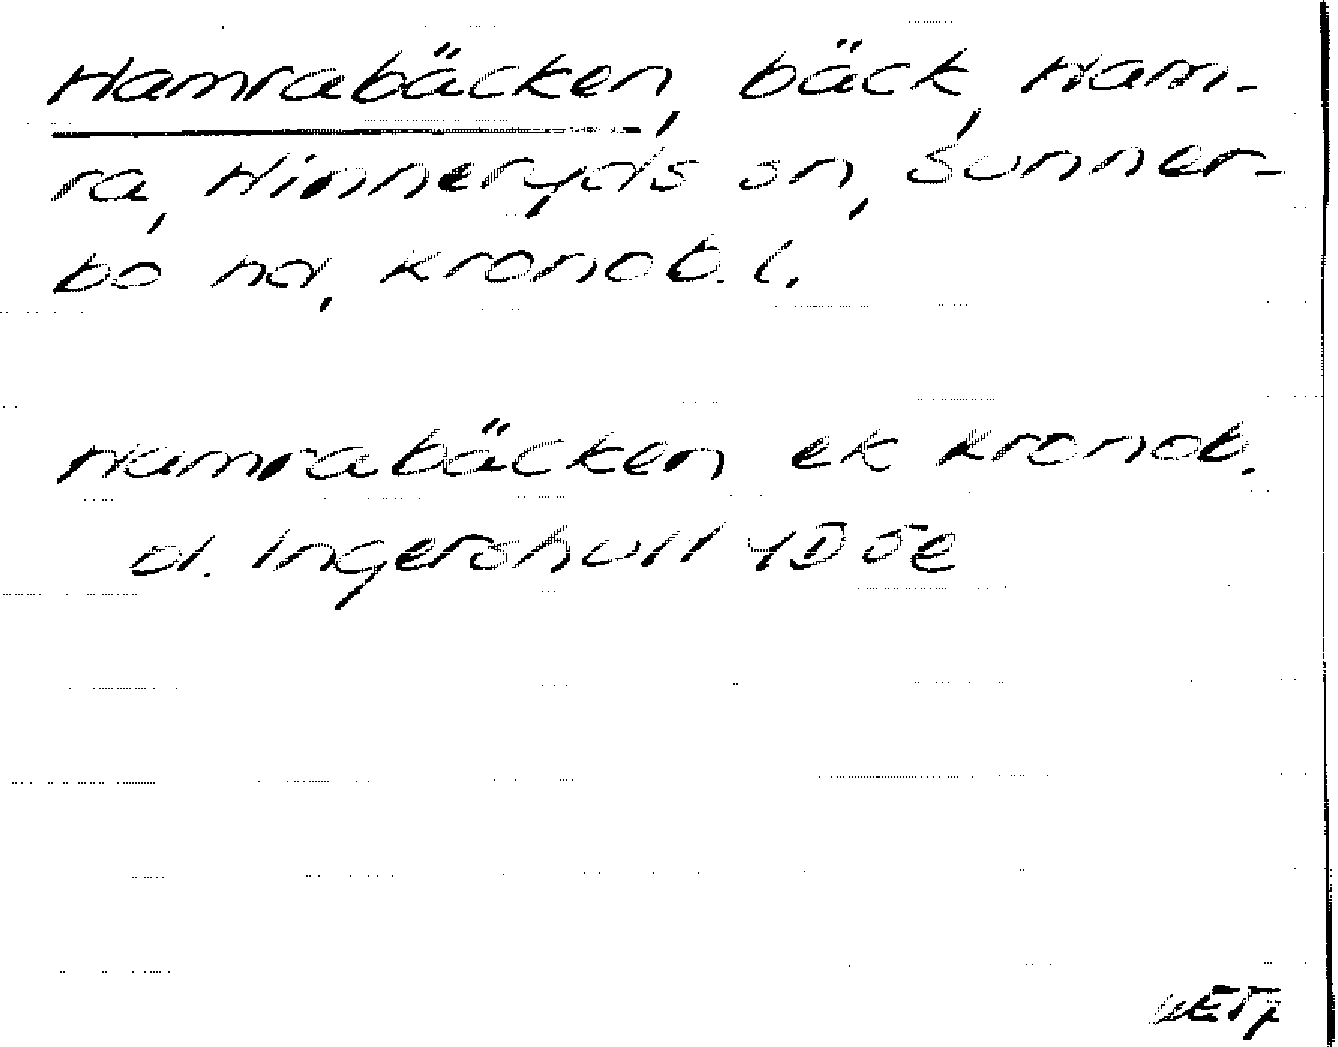 Hamrabäcken, bäck, Ham-
ra, Hinneryds sn, Sunner-
bo hd, Kronob. l.
Hamrabäcken ek Kronob.
d. Ingershult 4D 5e